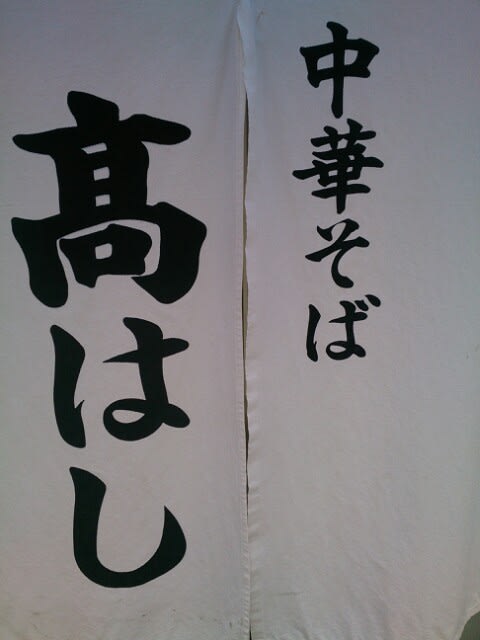 中華そば
髙はし